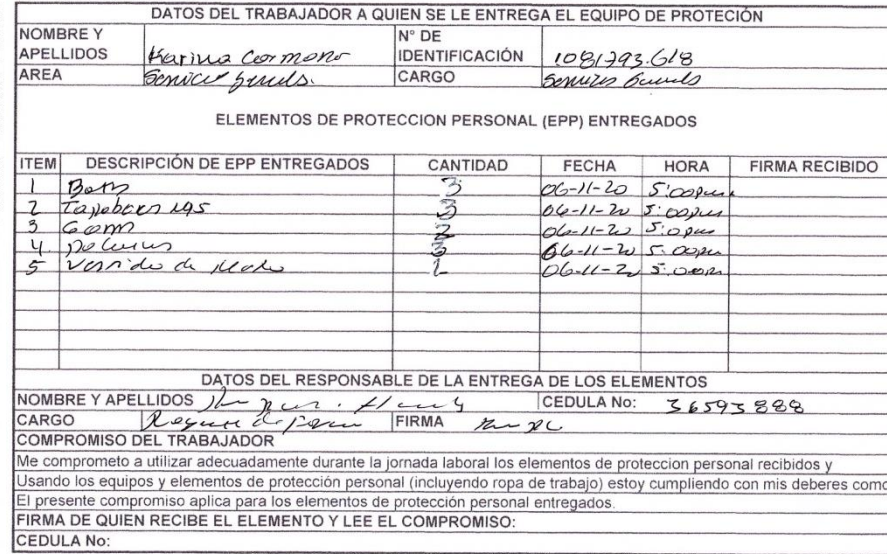 DATOS DEL TRABAJADOR A QUIEN SE LE ENTREGA EL EQUIPO DE PROTECIÓN
NOMBRE Y APELLIDOS Karina Carmono N° DE IDENTIFICACIÓN 1081793.618
AREA CARGO
ELEMENTOS DE PROTECCION PERSONAL (EPP) ENTREGADOS
ITEM DESCRIPCIÓN DE EPP ENTREGADOS CANTIDAD FECHA HORA FIRMA RECIBIDO
1 3 06-11-20 5:00pm
2 Tapabocas N95 3 06-11-20 5:00pm
3 06-11-20
4 3 06-11-20 5:00pm
5 06-11-20 5:00pm
DATOS DEL RESPONSABLE DE LA ENTREGA DE LOS ELEMENTOS
NOMBRE Y APELLIDOS CEDULA No: 36593888
CARGO FIRMA
COMPROMISO DEL TRABAJADOR
Me comprometo a utilizar adecuadamente durante la jornada laboral los elementos de proteccion personal recibidos y
Usando los equipos y elementos de protección personal (incluyendo ropa de trabajo) estoy cumpliendo con mis deberes como
El presente compromiso aplica para los elementos de protección personal entregados.
FIRMA DE QUIEN RECIBE EL ELEMENTO Y LEE EL COMPROMISO:
CEDULA No: